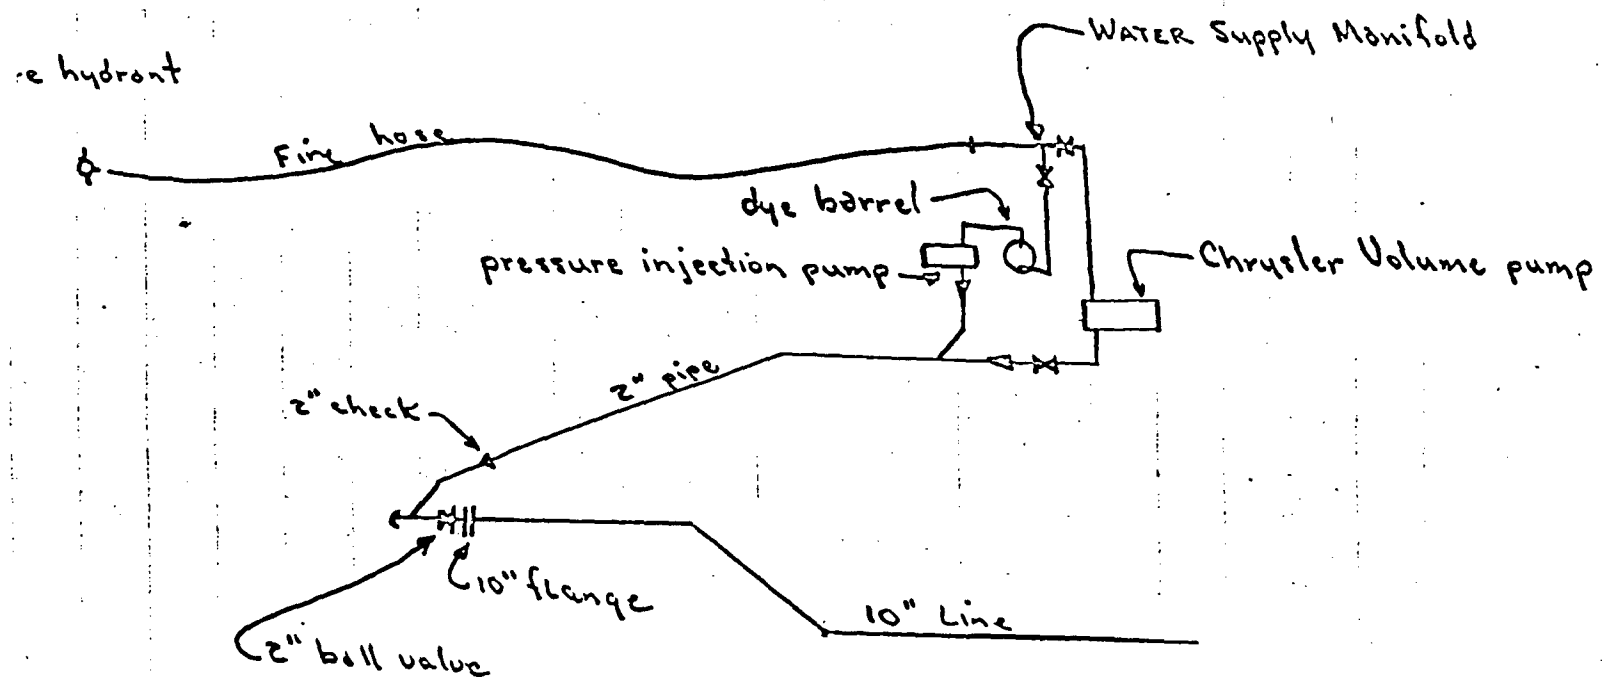 WATER Supply Manifold
e hydrant
Fire hose
dye barrel
pressure injection pump
Chrysler Volume pump
2" pipe
2" check
10" flange
10" Line
2" ball valve